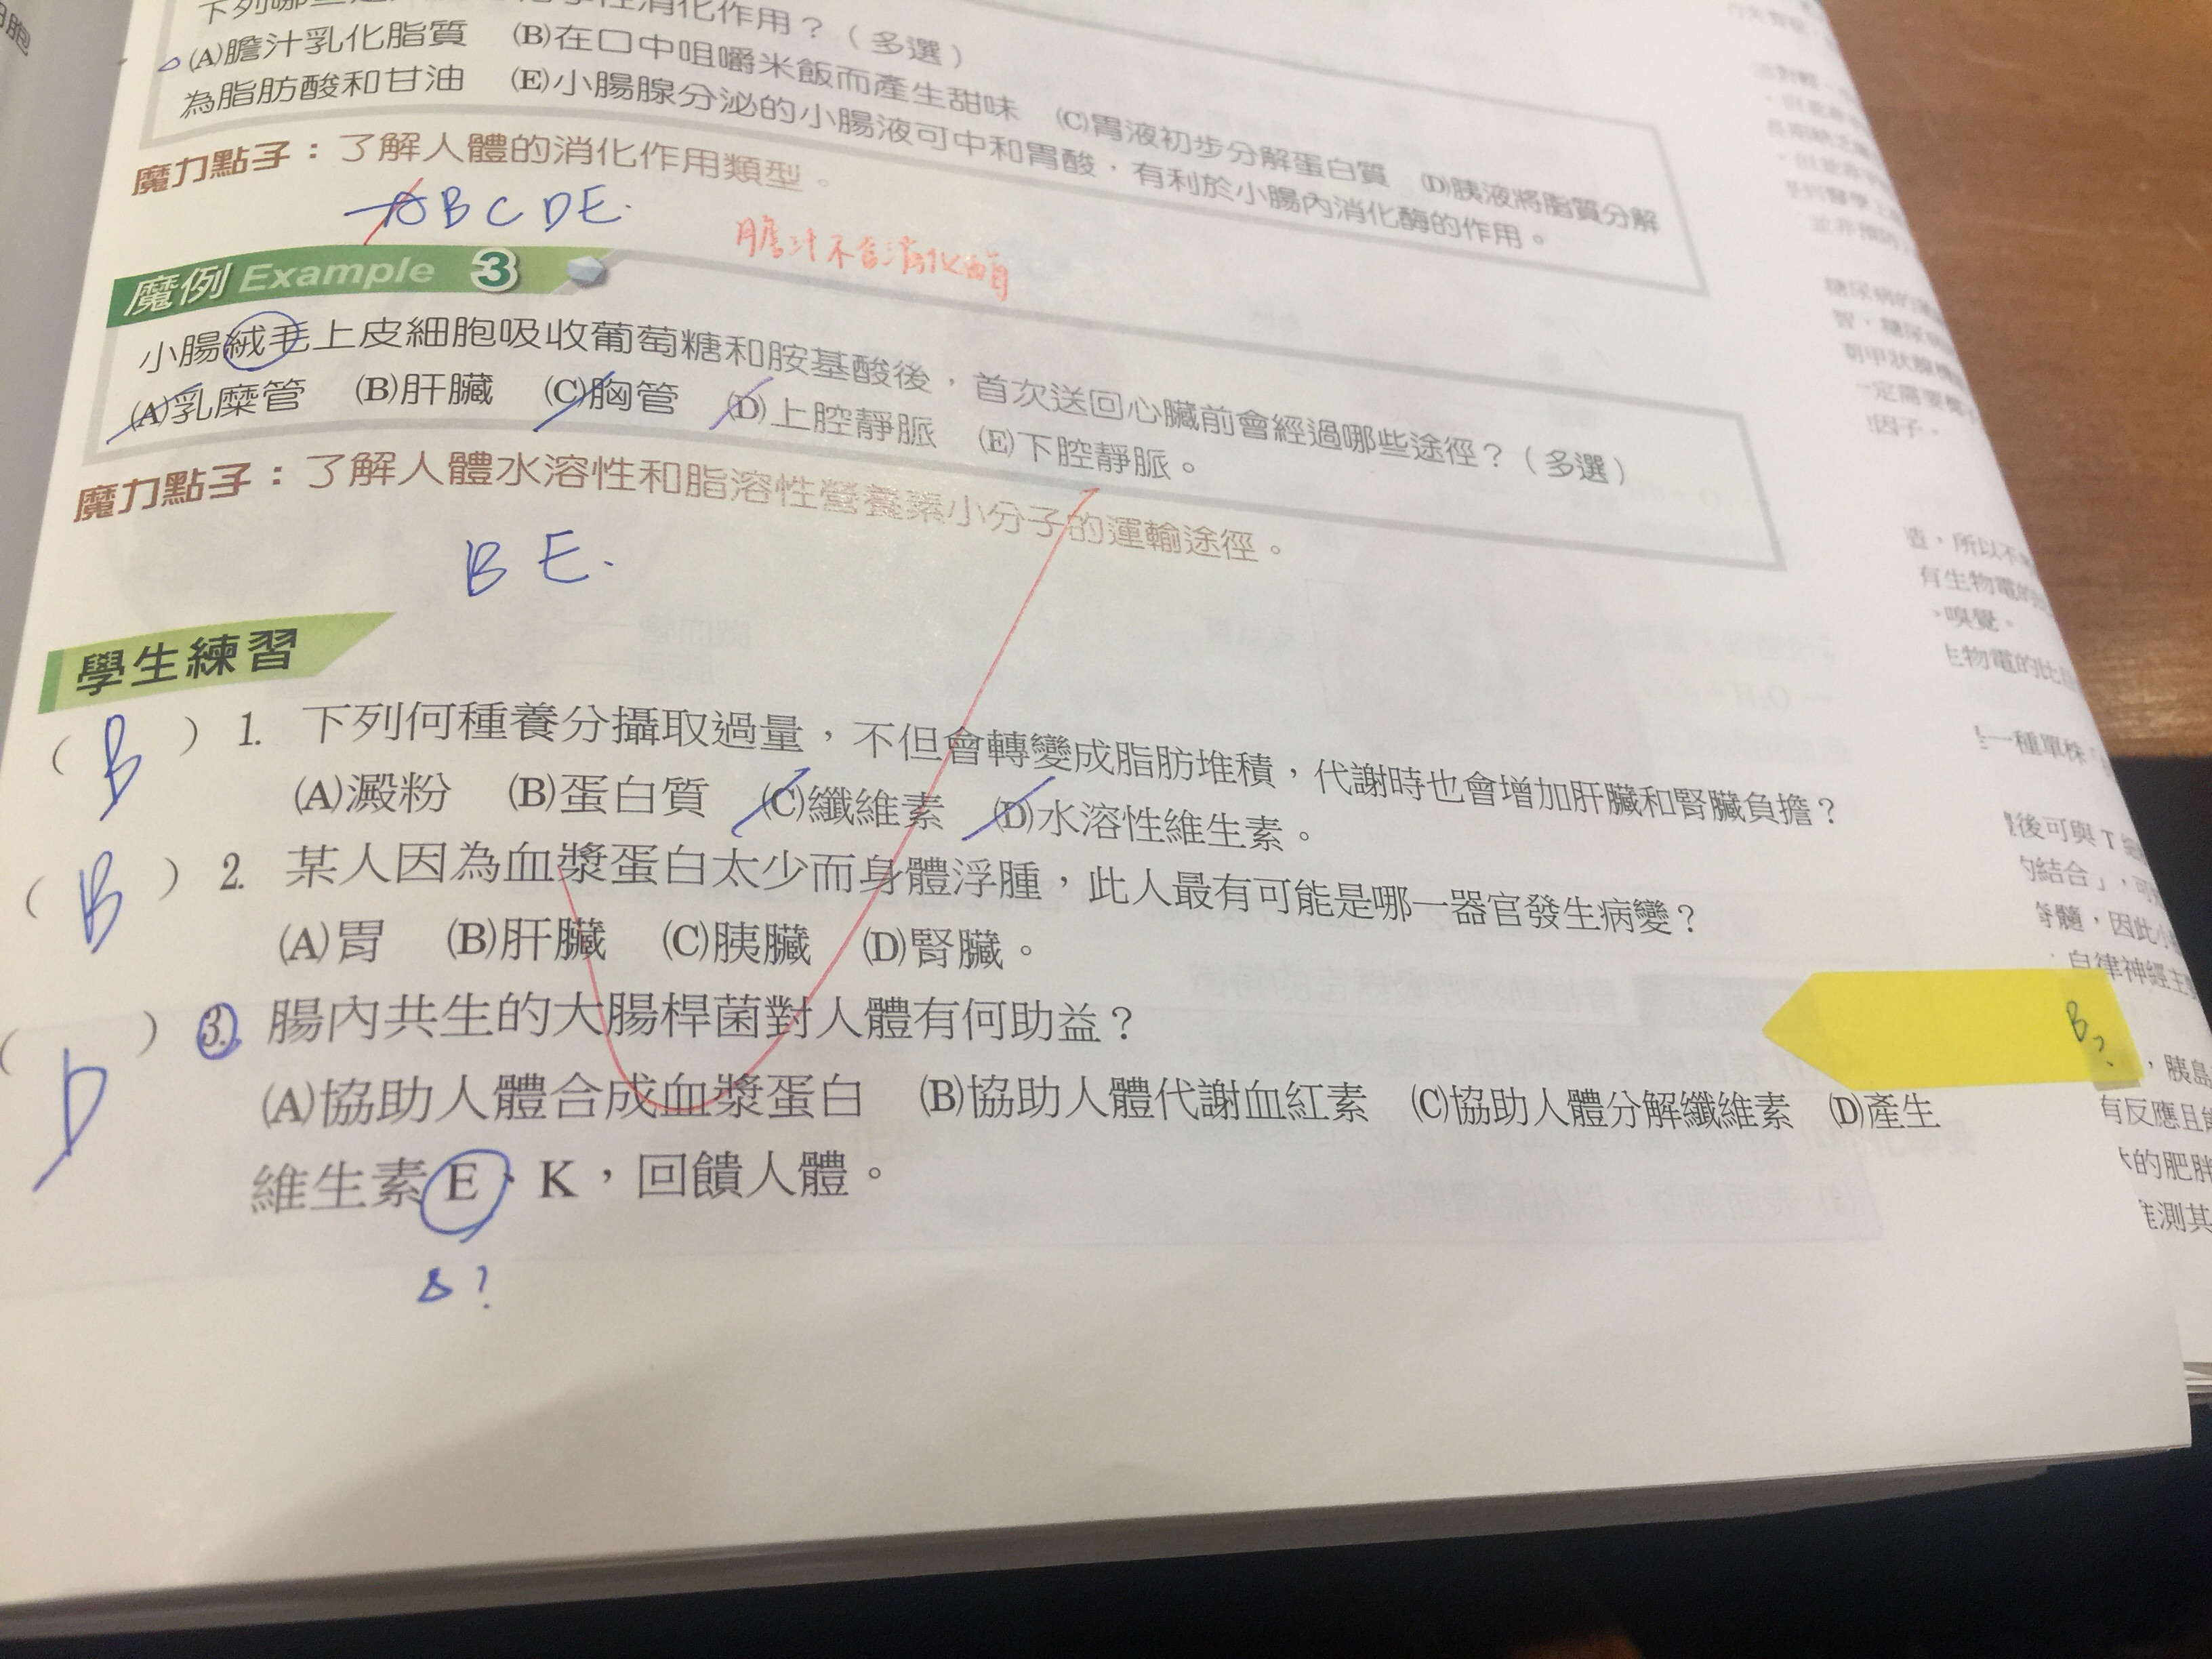 消化作用？（多選）
(A)膽汁乳化脂質 (B)在口中咀嚼米飯而產生甜味 (C)胃液初步分解蛋白質 (D)胰液將脂質分解
為脂肪酸和甘油 (E)小腸腺分泌的小腸液可中和胃酸，有利於小腸內消化酶的作用。
魔力點子：了解人體的消化作用類型。
BCDE.
膽汁不含消化酶
魔例 Example 3
小腸絨毛上皮細胞吸收葡萄糖和胺基酸後，首次送回心臟前會經過哪些途徑？（多選）
(A)乳糜管 (B)肝臟 (C)胸管 (D)上腔靜脈 (E)下腔靜脈。
魔力點子：了解人體水溶性和脂溶性營養素小分子的運輸途徑。
B E.
學生練習
（B）1. 下列何種養分攝取過量，不但會轉變成脂肪堆積，代謝時也會增加肝臟和腎臟負擔？
(A)澱粉 (B)蛋白質 (C)纖維素 (D)水溶性維生素。
（B）2. 某人因為血漿蛋白太少而身體浮腫，此人最有可能是哪一器官發生病變？
(A)胃 (B)肝臟 (C)胰臟 (D)腎臟。
（D）3. 腸內共生的大腸桿菌對人體有何助益？
(A)協助人體合成血漿蛋白 (B)協助人體代謝血紅素 (C)協助人體分解纖維素 (D)產生
維生素E、K，回饋人體。
B?
糖尿病的
甲狀腺
一定需要
因子。
，所以不
有生物電的
、嗅覺。
生物電的比
一種單株
後可與T
的結合」，可
脊髓，因此小
自律神經主
，胰島
有反應且
的肥胖
推測其